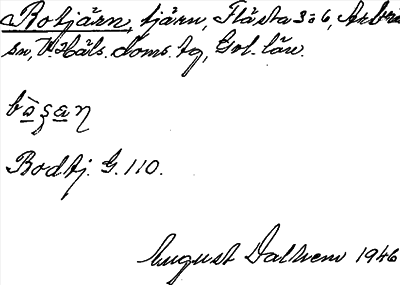 Botjärn, tjärn, Flästa 3 o 6, Arbrå
sn, V. Häls. doms. tg, Gvl. län.
Bodtj. G. 110.
August Dalhem 1946